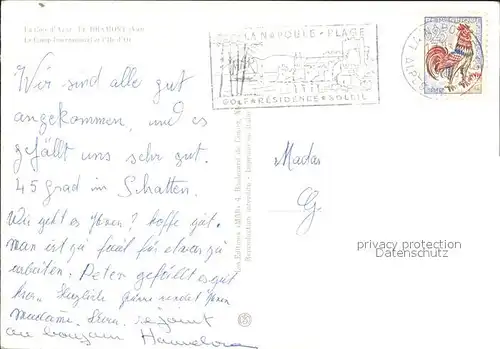 La Côte d'Azur - Le DRAMONT (Var)
Le Camp International et l'Ile d'Or
LA NAPOULE - PLAGE
GOLF RÉSIDENCE SOLEIL
Wir sind alle gut
angekommen, und es
gefällt uns sehr gut.
45 grad in Schatten.
Wie geht es Ihnen? hoffe gut.
Man ist zu faul für etwas zu
arbeiten. Peter gefällt es gut
hier. Herzliche Grüsse sendet Ihnen
Madame
au bonjour Hannelore
Madas
G
privacy protection
Datenschutz